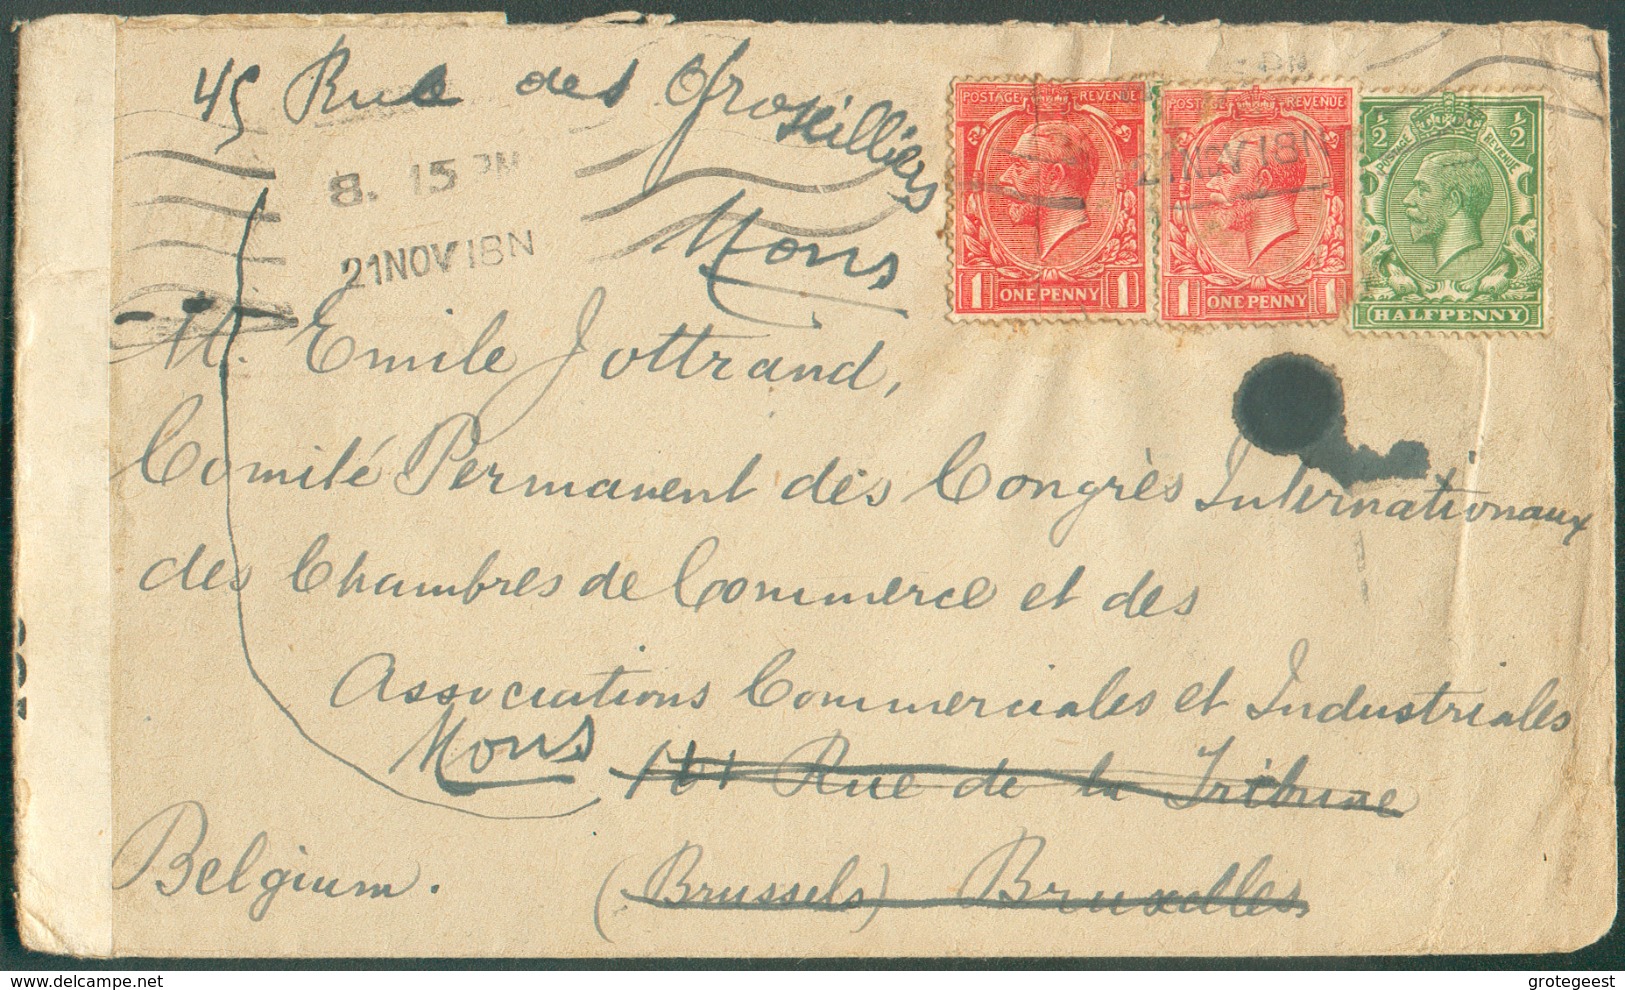 45 Rue des Groseilliers
Mons
8. 15 PM
21NOV18N
POSTAGE REVENUE
1 ONE PENNY 1
POSTAGE REVENUE
1 ONE PENNY 1
21NOV18N
1/2 POSTAGE REVENUE 1/2
HALFPENNY
M. Emile Jottrand,
Comité Permanent des Congrès Internationaux
des Chambres de Commerce et des
Associations Commerciales et Industriales
Mons
Rue de la Tribune
Belgium. (Brussels) Bruxelles
delcampe.net
grotegeest